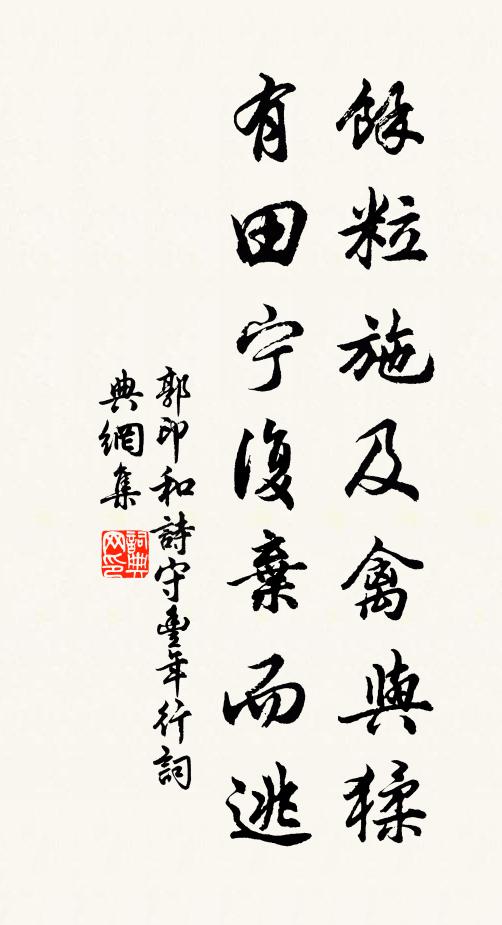 餘粒施及禽與猱
有田宁復棄而逃
郭印和詩守豐年行詞
典網集
詞典网印